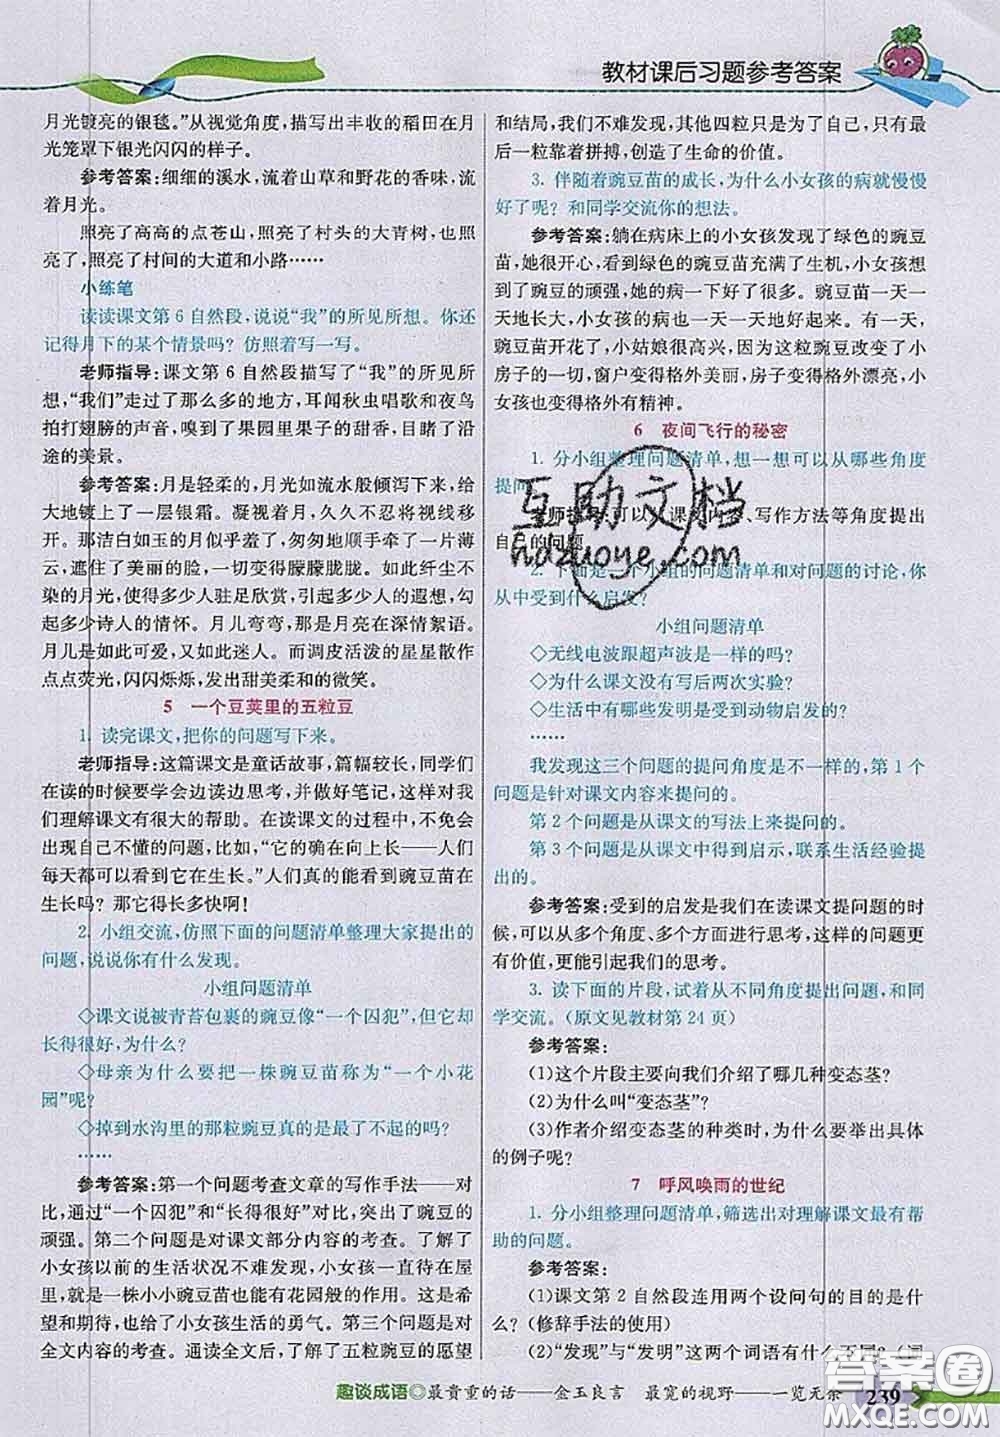 教材课后习题参考答案
月光镀亮的银毯。”从视觉角度，描写出丰收的稻田在月
光笼罩下银光闪闪的样子。
参考答案:细细的溪水，流着山草和野花的香味，流
着月光。
照亮了高高的点苍山，照亮了村头的大青树，也照
亮了，照亮了村间的大道和小路……
小练笔
读读课文第6自然段，说说“我”的所见所想。你还
记得月下的某个情景吗？仿照着写一写。
老师指导:课文第6自然段描写了“我”的所见所
想，“我们”走过了那么多的地方，耳闻秋虫唱歌和夜鸟
拍打翅膀的声音，嗅到了果园里果子的甜香，目睹了沿
途的美景。
参考答案:月是轻柔的，月光如流水般倾泻下来，给
大地铺上了一层银霜。凝视着月，久久不忍将视线移
开。那洁白如玉的月似乎羞涩了，匆匆顺手牵了一片薄
云，遮住了美丽的脸，一切变得朦朦胧胧。如此纤尘不
染的月光，使得多少人驻足欣赏，引得多少人的遐想，勾
起多少诗人的情怀。月儿弯弯，那是月亮在深情絮语。
月儿是如此可爱，又如此迷人。而调皮活泼的星星散作
点点荧光，闪闪烁烁，发出甜美柔和的微笑。
5 一个豆荚里的五粒豆
1. 读完课文，把你的问题写下来。
老师指导:这篇课文是童话故事，篇幅较长，同学们
在读的时候要学会边读边思考，并做好笔记，这样对我
们理解课文有很大的帮助。在读课文的过程中，不同的人
出现自己不懂的问题，比如，“它的确在向上长——人们
每天都可以看到它在生长。”人们真的能看到豌豆苗在
生长吗？那它得长多快啊！
2. 小组交流，仿照下面的问题清单整理大家提出的
问题，说说你有什么发现。
小组问题清单
◇课文说被青苔包裹的豌豆像“一个囚犯”，但它却
长得很好，为什么？
◇母亲为什么要把一株豌豆苗称为“一个小花
园”呢？
◇掉到水沟里的那粒豌豆真的是最了不起的吗？
……
参考答案:第一个问题考查文章的写作手法——对
比，通过“一个囚犯”和“长得很好”对比，突出了豌豆的
顽强。第二个问题是对课文部分内容的考查。了解了
小女孩以前的生活状况不难发现，小女孩一直待在屋
里，就是这样的一株小小豌豆苗也能有花园般的作用。这是
希望和期望，也给了小女孩生活的勇气。第三个问题是对
全文内容的考查。通读全文后，了解了五粒豌豆的愿望
和结局，我们不难发现，其他四粒只是为了自己，只有最
后一粒靠着拼搏，创造了生命的价值。
3. 伴随着豌豆苗的成长，为什么小女孩的病就慢慢
好了呢？和同学交流你的想法。
参考答案:躺在病床上的小女孩发现了绿色的豌豆
苗，她很开心，看到绿色的豌豆苗充满了生机，小女孩感
到了豌豆的顽强，她的病一下子就好了很多。豌豆苗一天一
天地长大，小女孩的病也一天一天地好起来。有一天，
豌豆苗开花了，小姑娘很高兴，因为这粒豌豆改变了小
房子的一切，窗户变得格外美丽，房子变得格外漂亮，小
女孩也变得格外有精神。
6 夜间飞行的秘密
1. 分小组整理问题清单，想一想可以从哪些角度
提问。
老师指导:可以从课文内容、写作方法等角度提出
自己的问题。
2. 下面是一个小组的问题清单和对问题的讨论，你
从中受到什么启发？
小组问题清单
◇无线电波跟超声波是一样的吗？
◇为什么课文没有写后两次实验？
◇生活中有哪些发明是受到动物启发的？
……
我发现这三个问题的提问角度是不一样的，第1个
问题是针对课文内容来提问的。
第2个问题是从课文的写法上来提问的。
第3个问题是从课文中得到启示，联系生活经验提
出的。
参考答案:受到的启发是我们在读课文提问题的时
候，可以从多个角度、多个方面进行思考，这样的问题更
有价值，更能引起我们的思考。
3. 读下面的片段，试着从不同角度提出问题，和同
学交流。（原文见教材第24页）
参考答案:
(1)这个片段主要向我们介绍了哪几种变态茎？
(2)为什么叫“变态茎”？
(3)作者介绍变态茎的种类时，为什么要举出具体
的例子呢？
7 呼风唤雨的世纪
1. 分小组整理问题清单，筛选出对理解课文最有帮
助的问题。
参考答案:
(1)课文第2自然段连用两个设问句的目的是什
么？(修辞手法的使用)
(2)“发现”与“发明”这两个词语有什么不同？
趣谈成语◎最贵重的话——金玉良言 最宽的视野——一览无余 239
互助文档
hdzuoye.com
答案圈
MXQE.COM